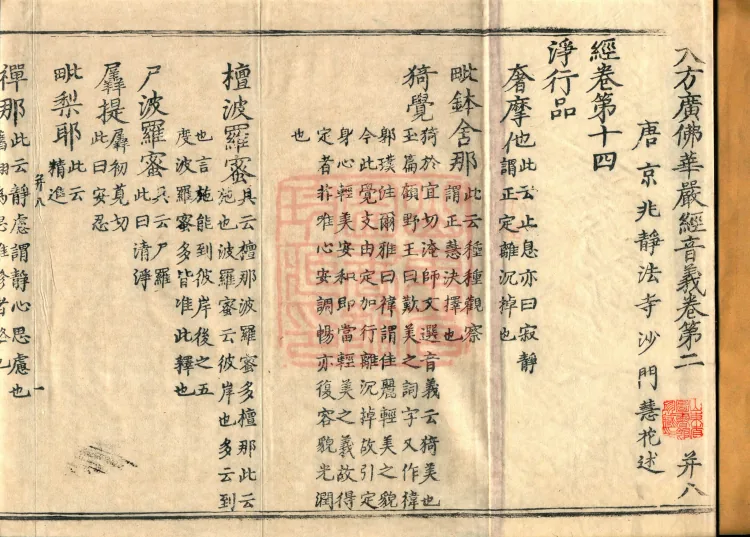 大方廣佛華嚴經音義卷第二
唐京兆靜法寺沙門慧苑述 并八
經卷第十四
淨行品
奢摩他此云止息亦曰寂靜
謂正定離沉掉也
毗鉢舍那此云種種觀察
謂正慧決擇也
猗覺猗於宜切淹師文選音義云猗美也
玉篇顧野王曰歎美之詞字又作禕
郭璞注爾雅曰禕謂佳麗輕美之貌
今此覺支由定加行離沉掉故引定
身心輕美安和即當輕美之義故得
定者非唯心安調暢亦復容貌光潤
也
檀波羅蜜具云檀那波羅蜜多檀那此云
施也波羅蜜云彼岸也多云到
也言施能到彼岸後之五
度波羅蜜多皆准此釋也
尸波羅蜜具云尸羅
此曰清淨
羼提羼初莧切
此曰安忍
毗梨耶此云
精進
并八
一
禪那此云靜慮謂靜心思慮也